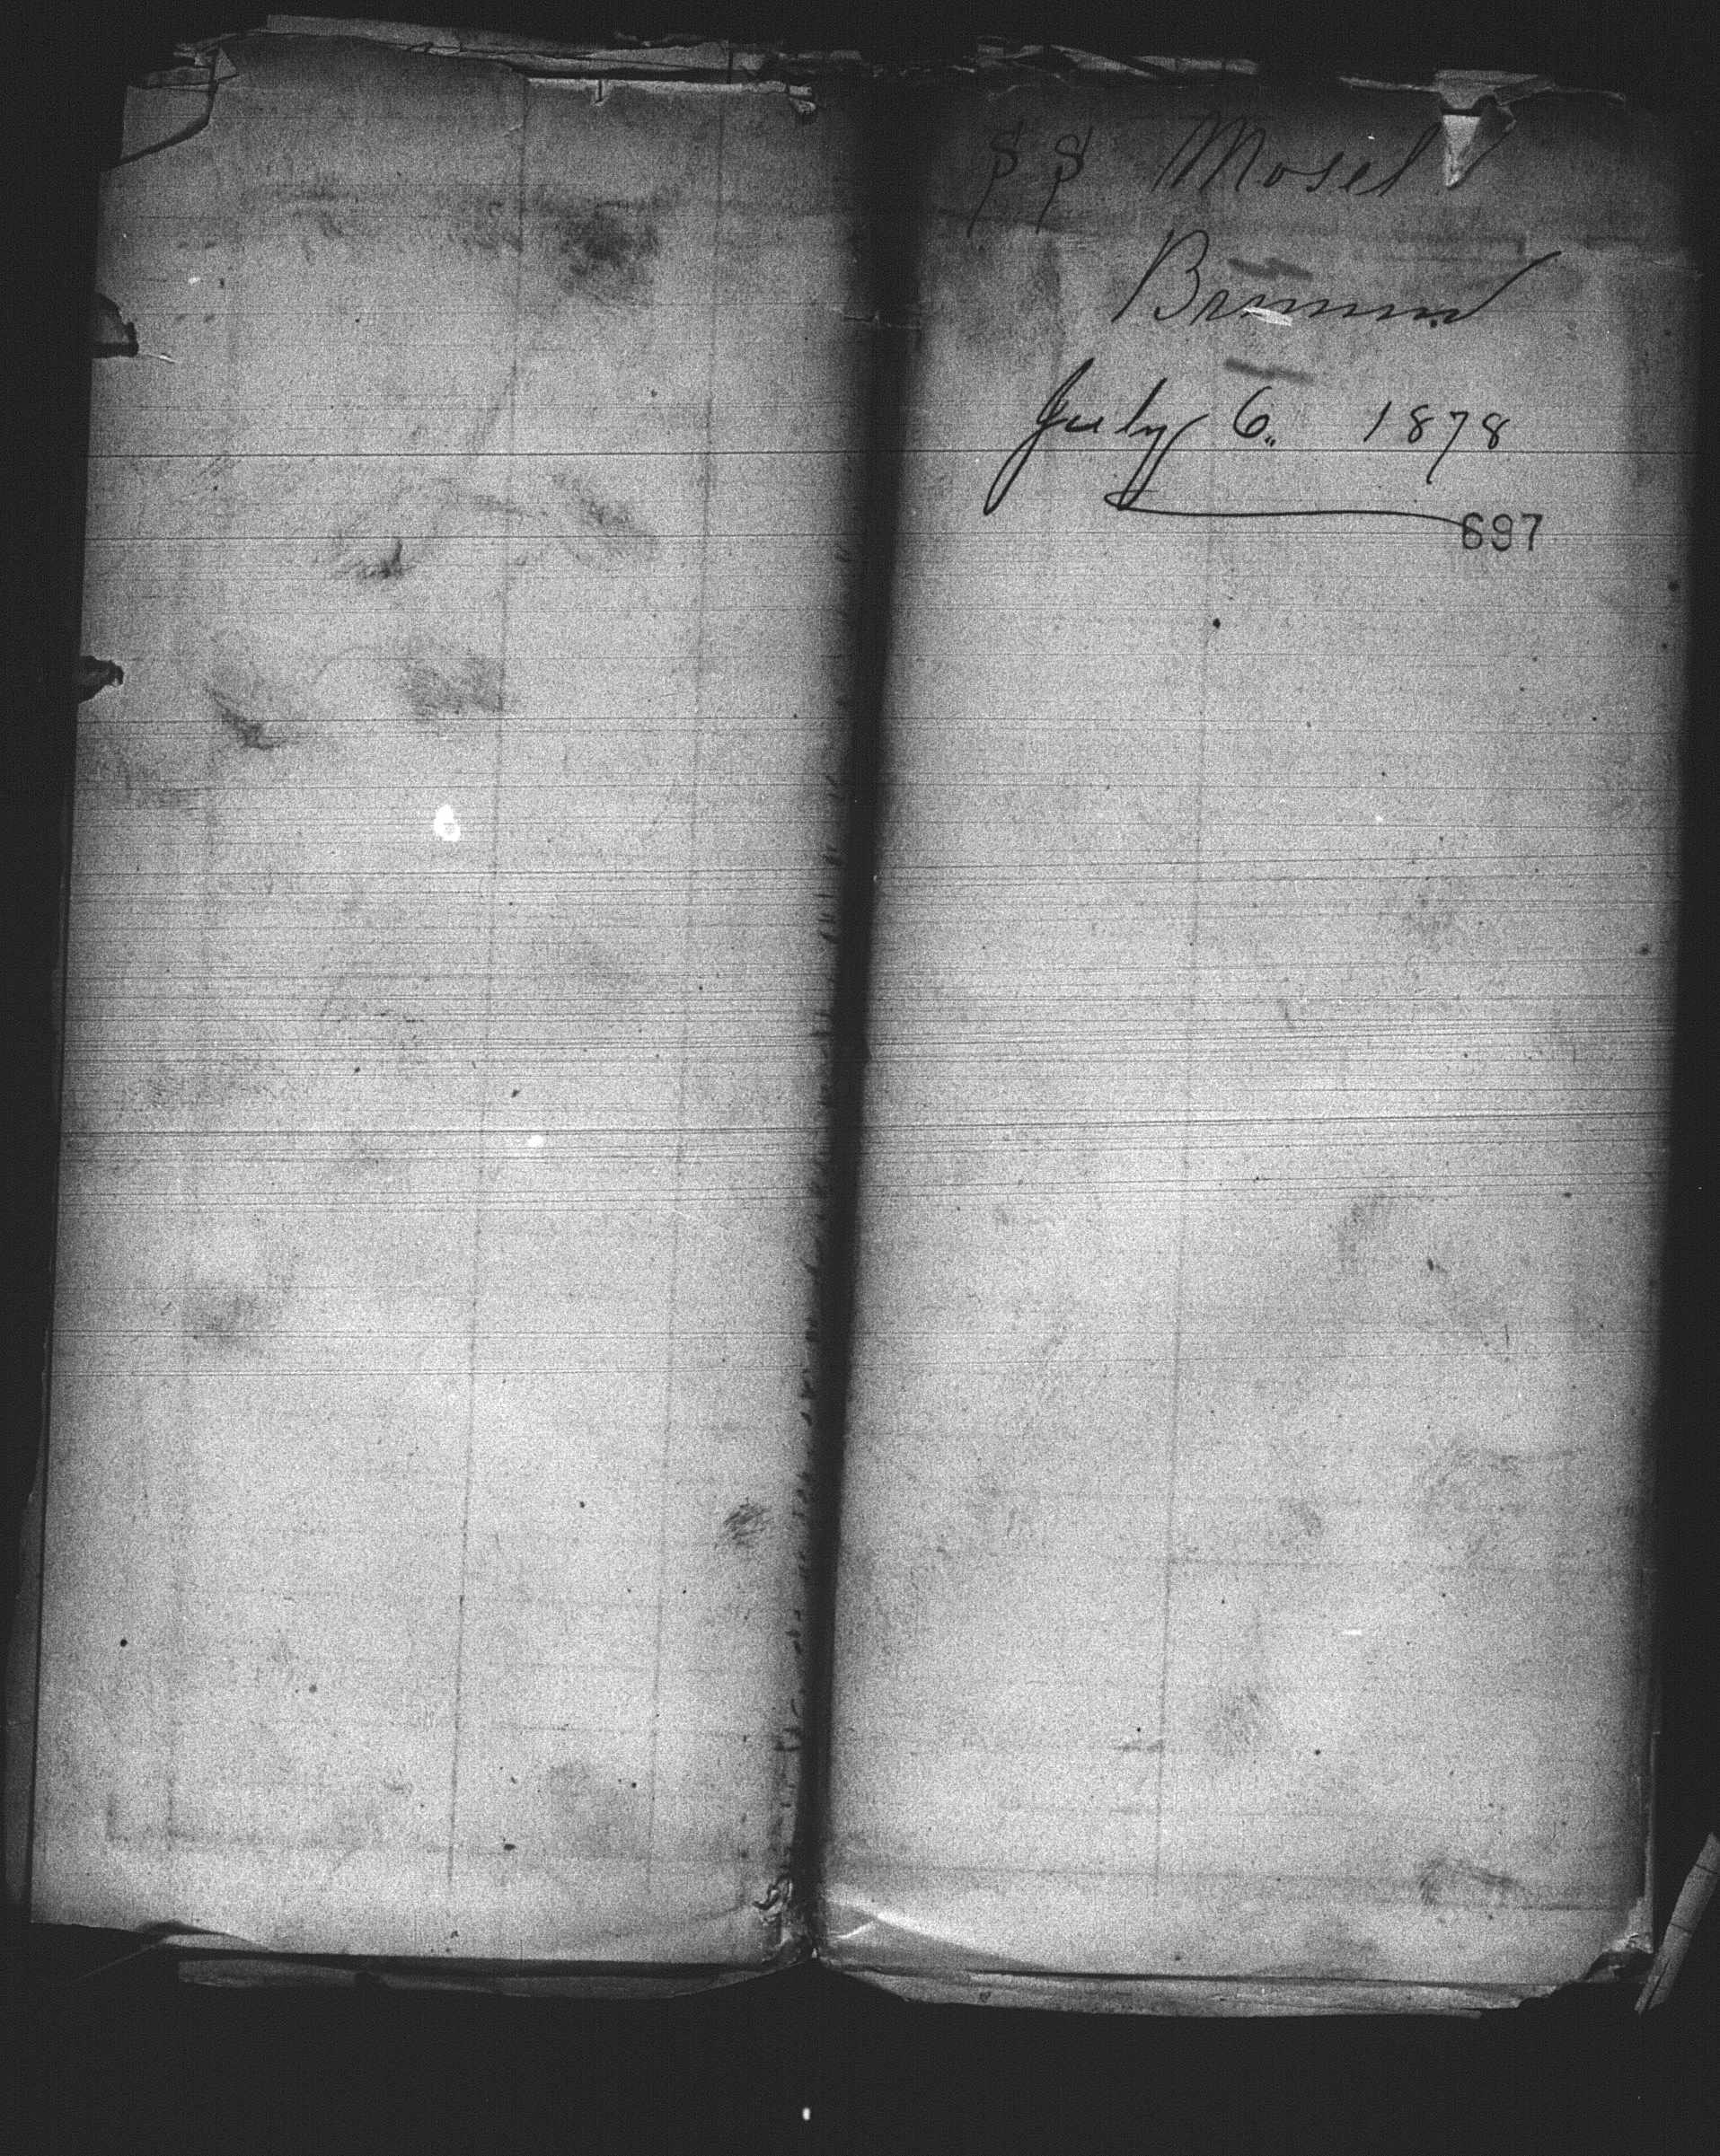 SS Mosel
Bremen
July 6. 1878
697